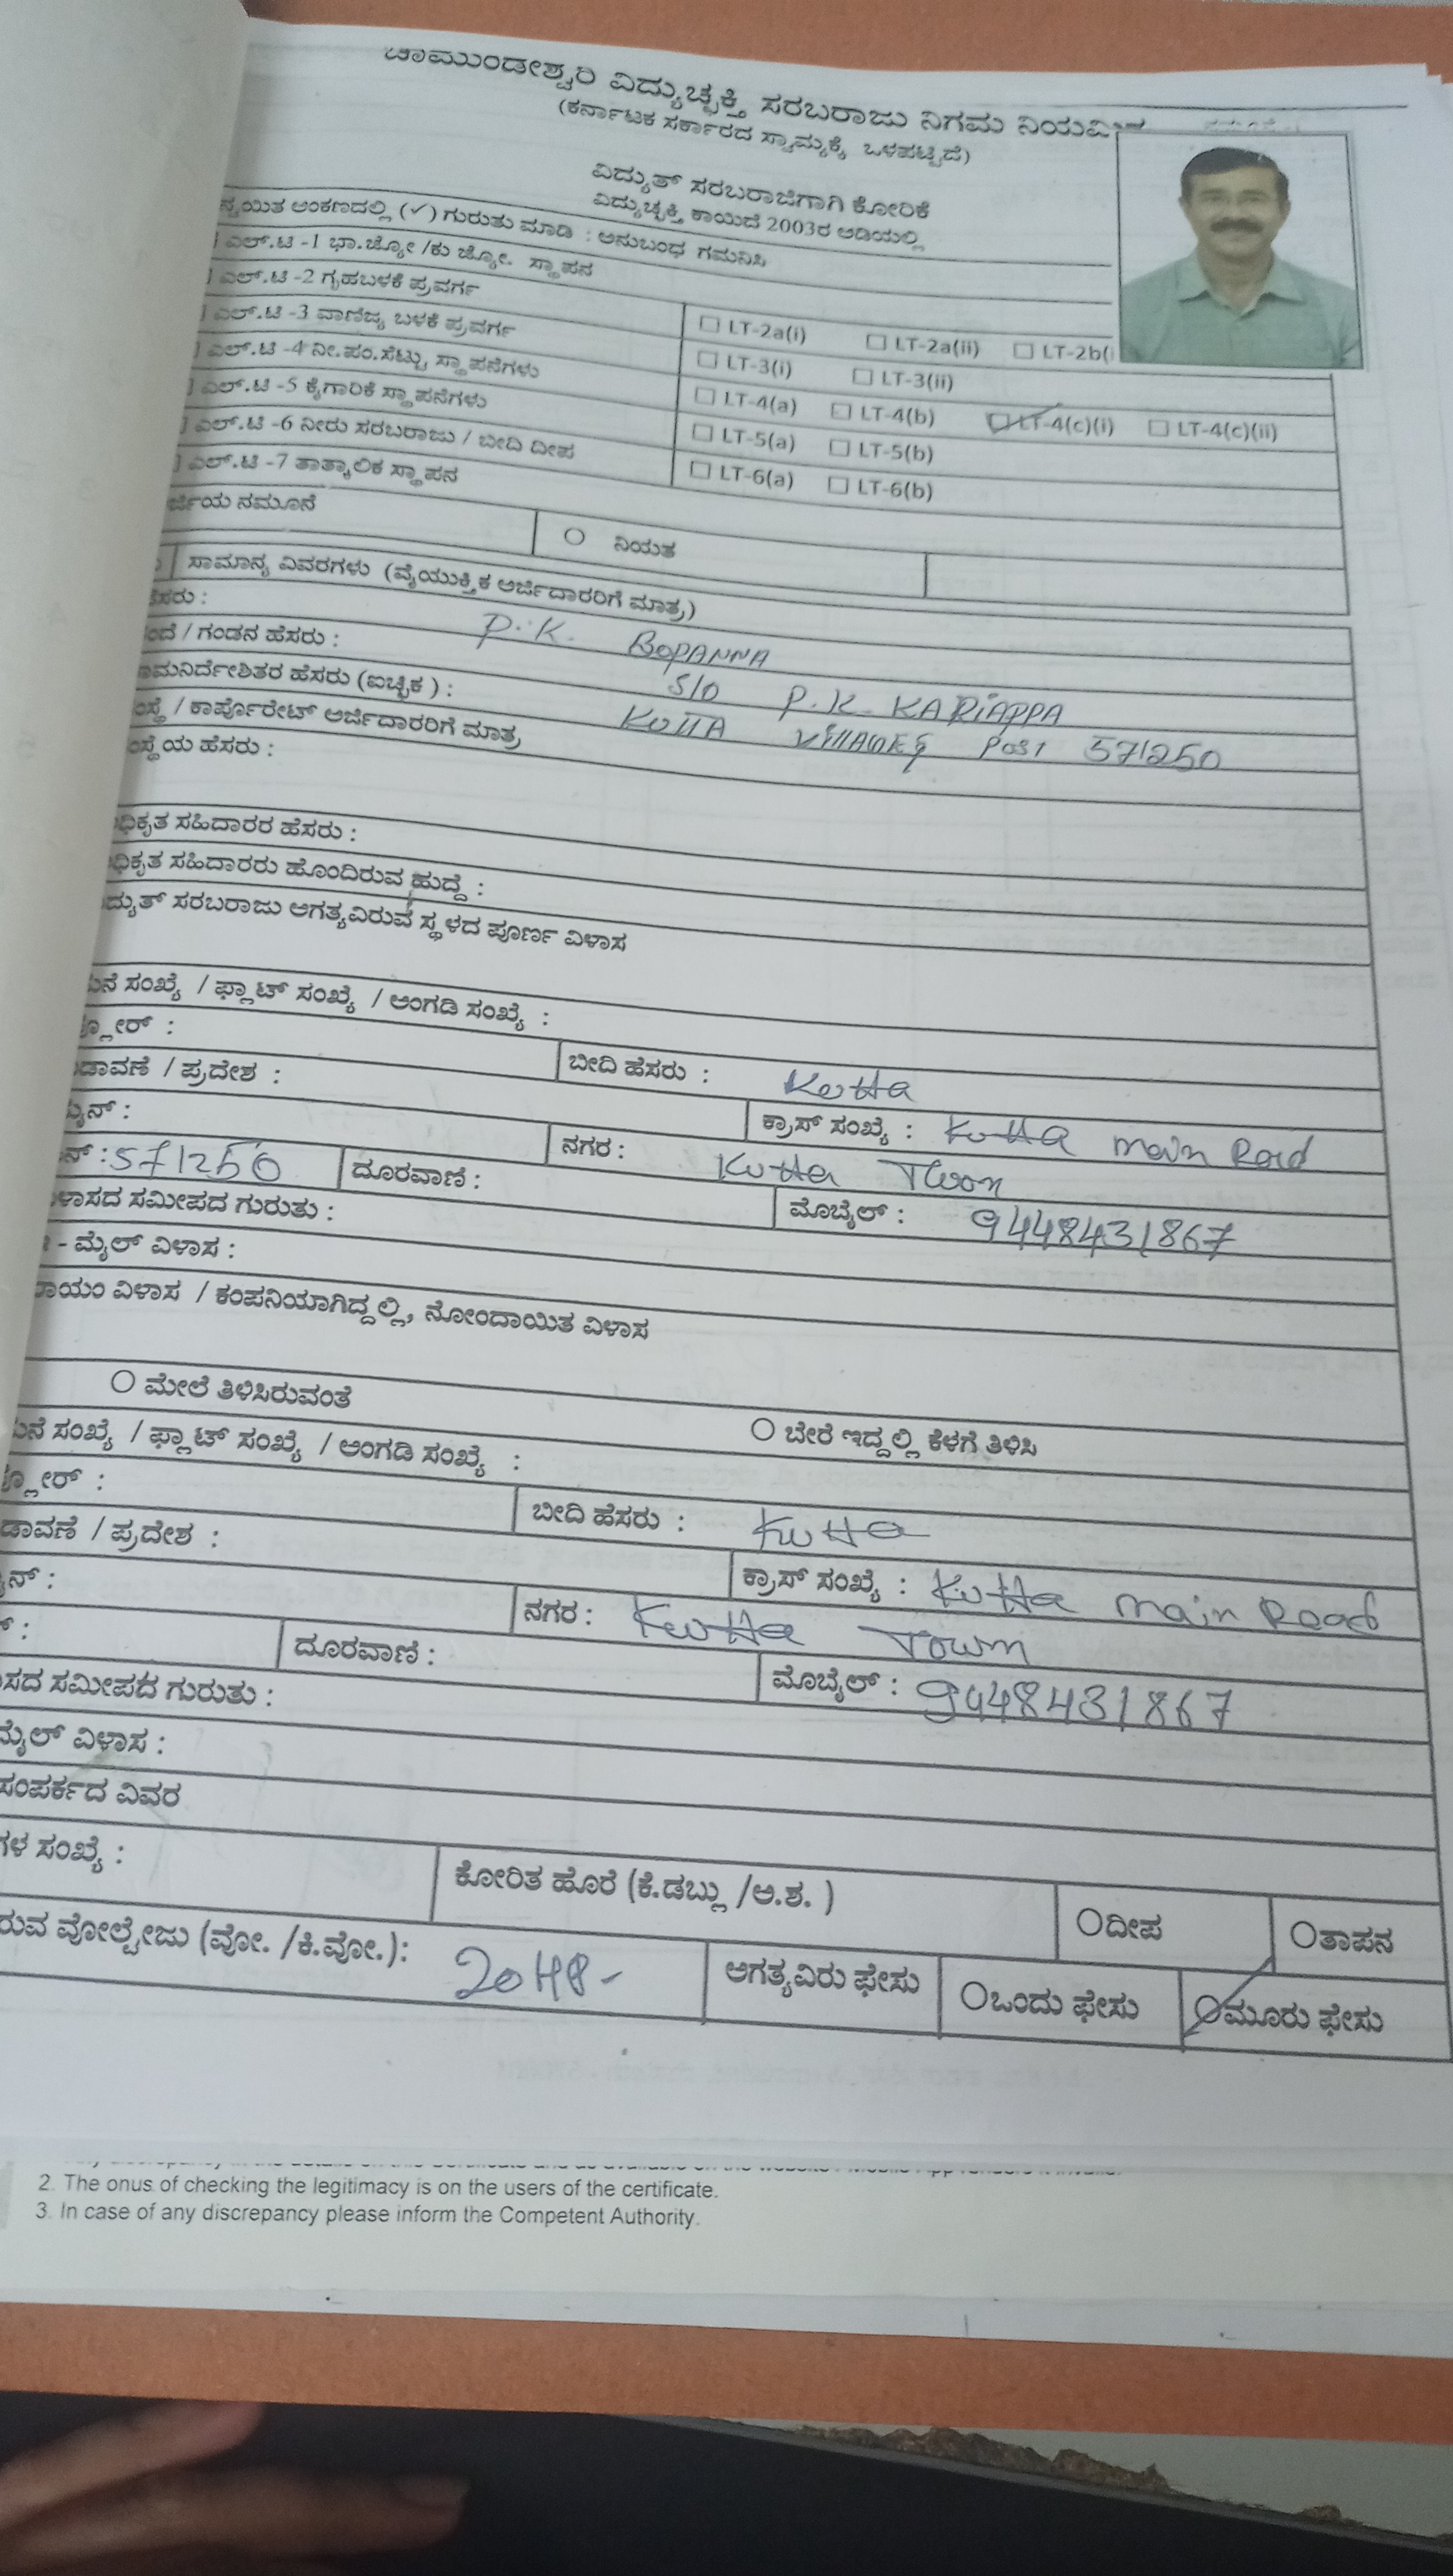 ಚಾಮುಂಡೇಶ್ವರಿ ವಿದ್ಯುಚ್ಛಕ್ತಿ ಸರಬರಾಜು ನಿಗಮ ನಿಯಮಿತ
(ಕರ್ನಾಟಕ ಸರ್ಕಾರದ ಸ್ವಾಮ್ಯಕ್ಕೆ ಒಳಪಟ್ಟಿದೆ)
ವಿದ್ಯುತ್ ಸರಬರಾಜಿಗಾಗಿ ಕೋರಿಕೆ
ವಿದ್ಯುಚ್ಛಕ್ತಿ ಕಾಯಿದೆ 2003ರ ಅಡಿಯಲ್ಲಿ
ನ್ವಯಿತ ಅಂಕಣದಲ್ಲಿ (✓) ಗುರುತು ಮಾಡಿ : ಅನುಬಂಧ ಗಮನಿಸಿ
ಎಲ್.ಟಿ -1 ಭಾ.ಜ್ಯೋ /ಕು ಜ್ಯೋ. ಸ್ಥಾಪನ
ಎಲ್.ಟಿ -2 ಗೃಹಬಳಕೆ ಪ್ರವರ್ಗ ☐ LT-2a(i) ☐ LT-2a(ii) ☐ LT-2b(i
ಎಲ್.ಟಿ -3 ವಾಣಿಜ್ಯ ಬಳಕೆ ಪ್ರವರ್ಗ ☐ LT-3(i) ☐ LT-3(ii)
ಎಲ್.ಟಿ -4 ನೀ.ಪಂ.ಸೆಟ್ಟು ಸ್ಥಾಪನೆಗಳು ☐ LT-4(a) ☐ LT-4(b) ☑ LT-4(c)(i) ☐ LT-4(c)(ii)
ಎಲ್.ಟಿ -5 ಕೈಗಾರಿಕೆ ಸ್ಥಾಪನೆಗಳು ☐ LT-5(a) ☐ LT-5(b)
ಎಲ್.ಟಿ -6 ನೀರು ಸರಬರಾಜು / ಬೀದಿ ದೀಪ ☐ LT-6(a) ☐ LT-6(b)
ಎಲ್.ಟಿ -7 ತಾತ್ಕಾಲಿಕ ಸ್ಥಾಪನ
ರ್ಜಿಯ ನಮೂನೆ ○ ನಿಯತ
ಸಾಮಾನ್ಯ ವಿವರಗಳು (ವೈಯುಕ್ತಿಕ ಅರ್ಜಿದಾರರಿಗೆ ಮಾತ್ರ)
ಹೆಸರು : P.K. BOPANNA
ಂದೆ / ಗಂಡನ ಹೆಸರು : S/O P.K. KARIAPPA
ಾಮನಿರ್ದೇಶಿತರ ಹೆಸರು (ಐಚ್ಛಿಕ ) : KUTTA VILLAGE & POST 571250
ಂಸ್ಥೆ / ಕಾರ್ಪೊರೇಟ್ ಅರ್ಜಿದಾರರಿಗೆ ಮಾತ್ರ
ಂಸ್ಥೆಯ ಹೆಸರು :
ಧಿಕೃತ ಸಹಿದಾರರ ಹೆಸರು :
ಧಿಕೃತ ಸಹಿದಾರರು ಹೊಂದಿರುವ ಹುದ್ದೆ :
ದ್ಯುತ್ ಸರಬರಾಜು ಅಗತ್ಯವಿರುವ ಸ್ಥಳದ ಪೂರ್ಣ ವಿಳಾಸ
ನೆ ಸಂಖ್ಯೆ / ಫ್ಲಾಟ್ ಸಂಖ್ಯೆ / ಅಂಗಡಿ ಸಂಖ್ಯೆ :
ಫ್ಲೋರ್ : ಬೀದಿ ಹೆಸರು : Kutta
ಡಾವಣೆ / ಪ್ರದೇಶ : ಕ್ರಾಸ್ ಸಂಖ್ಯೆ : Kutta main Road
ನ್ : ನಗರ : Kutta Twon
ನ್ : 571250 ದೂರವಾಣಿ : ಮೊಬೈಲ್ : 9448431867
ಳಾಸದ ಸಮೀಪದ ಗುರುತು :
- ಮೈಲ್ ವಿಳಾಸ :
ಾಯಂ ವಿಳಾಸ / ಕಂಪನಿಯಾಗಿದ್ದಲ್ಲಿ, ನೋಂದಾಯಿತ ವಿಳಾಸ
○ ಮೇಲೆ ತಿಳಿಸಿರುವಂತೆ ○ ಬೇರೆ ಇದ್ದಲ್ಲಿ ಕೆಳಗೆ ತಿಳಿಸಿ
ನೆ ಸಂಖ್ಯೆ / ಫ್ಲಾಟ್ ಸಂಖ್ಯೆ / ಅಂಗಡಿ ಸಂಖ್ಯೆ :
ಫ್ಲೋರ್ : ಬೀದಿ ಹೆಸರು : Kutta
ಡಾವಣೆ / ಪ್ರದೇಶ : ಕ್ರಾಸ್ ಸಂಖ್ಯೆ : Kutta main Road
ನ್ : ನಗರ : Kutta Town
ದೂರವಾಣಿ : ಮೊಬೈಲ್ : 9448431867
ಸದ ಸಮೀಪದ ಗುರುತು :
ಮೈಲ್ ವಿಳಾಸ :
ಸಂಪರ್ಕದ ವಿವರ
ಗಳ ಸಂಖ್ಯೆ : ಕೋರಿತ ಹೊರೆ (ಕೆ.ಡಬ್ಲು /ಅ.ಶ. ) ○ದೀಪ ○ತಾಪನ
ರುವ ವೋಲ್ಟೇಜು (ವೋ. /ಕಿ.ವೋ.): 20 HP- ಅಗತ್ಯವಿರು ಫೇಸು ○ಒಂದು ಫೇಸು ○ಮೂರು ಫೇಸು
2. The onus of checking the legitimacy is on the users of the certificate.
3. In case of any discrepancy please inform the Competent Authority.